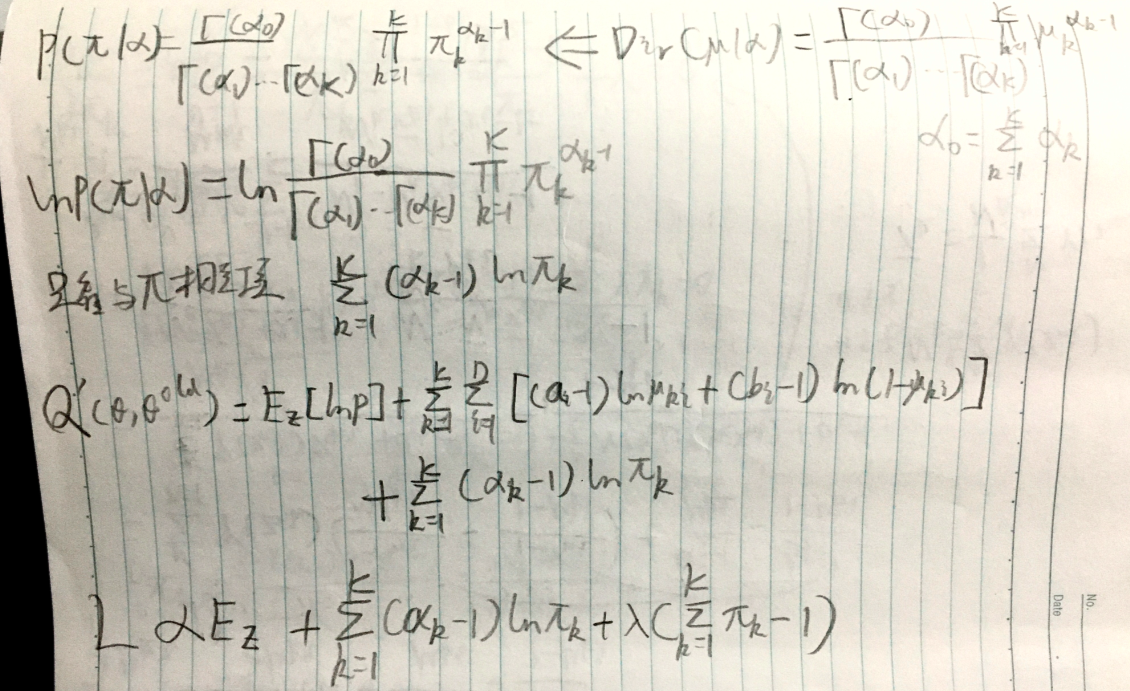 p(π|α) = Γ(α₀) / Γ(α₁)…Γ(α_K) ∏_{k=1}^{K} π_k^{α_k-1} ⇐ Dir(μ|α) = Γ(α₀) / Γ(α₁)…Γ(α_K) ∏_{k=1}^{K} μ_k^{α_k-1}
α₀ = ∑_{k=1}^{K} α_k
ln p(π|α) = ln Γ(α₀) / Γ(α₁)…Γ(α_K) ∏_{k=1}^{K} π_k^{α_k-1}
与π相关项 ∑_{k=1}^{K} (α_k-1) ln π_k
Q'(θ,θ^{old}) = E_z[ln p] + ∑_{k=1}^{K} ∑_{i=1}^{D} [(a_i-1) ln μ_{ki} + (b_i-1) ln(1-μ_{ki})]
+ ∑_{k=1}^{K} (α_k-1) ln π_k
L ∝ E_z + ∑_{k=1}^{K} (α_k-1) ln π_k + λ(∑_{k=1}^{K} π_k - 1)
No.
Date